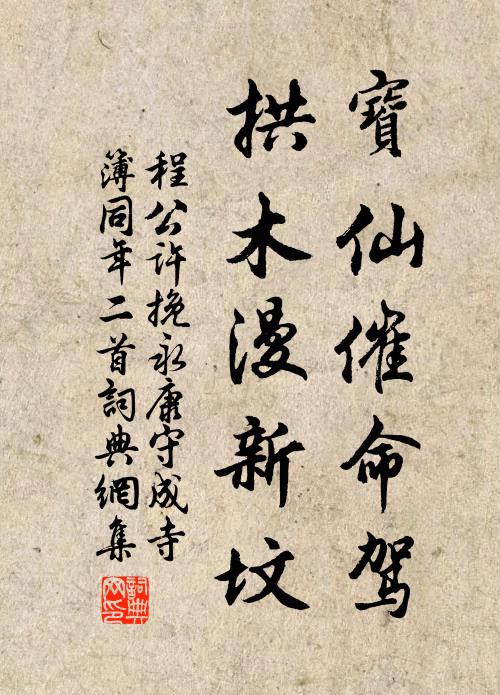 寶仙催命駕
拱木漫新墳
程公許挽永康守成寺
簿同年二首詞典網集